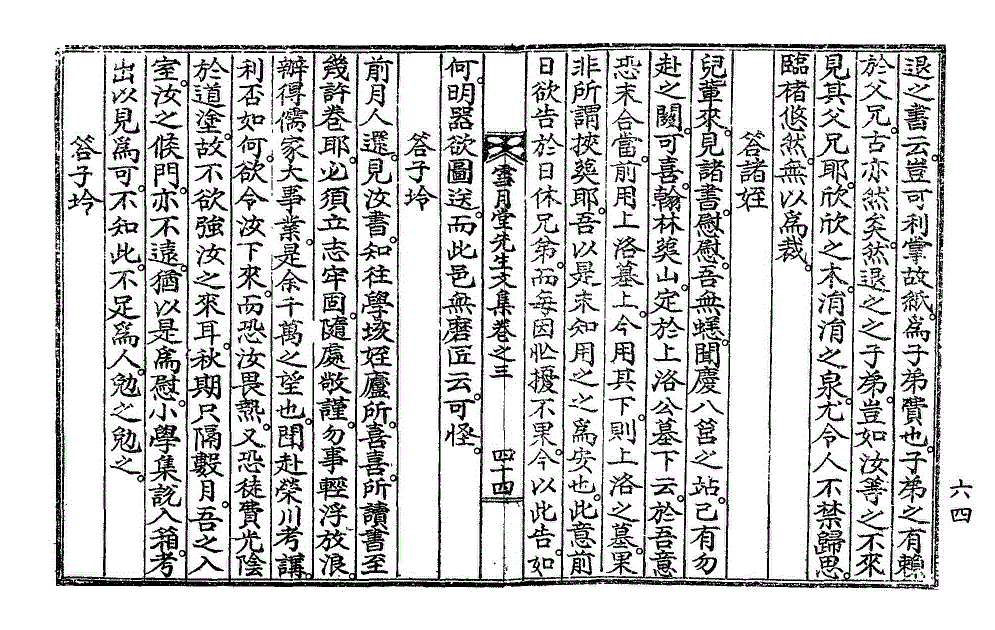 退之書云豈可利掌故紙爲子弟費也子弟之有賴
於父兄古亦然矣然退之之子弟豈如汝等之不來
見其父兄耶欣欣之木涓涓之泉尤令人不禁歸思
臨楮悠然無以爲裁
答諸姪
兒輩來見諸書慰慰吾無蟋聞慶八莒之站己有勿
赴之關可喜翰林葬山定於上洛公墓下云於吾意
恐未合當前用上洛墓上今用其下則上洛之墓果
非所謂挾葬耶吾以是未知用之之爲安也此意前
日欲告於日休兄弟而每因忙擾不果今以此告如
何明器欲圖送而此邑無磨匠云可怪
答子坽
前月人還見汝書知往學垓姪廬所喜喜所讀書至
幾許卷耶必須立志牢固隨處敬謹勿事輕浮放浪
辦得儒家大事業是余千萬之望也聞赴榮川考講
利否如何欲令汝下來而恐汝畏熱又恐徒費光陰
於道塗故不欲強汝之來耳秋期只隔數月吾之入
室汝之候門亦不遠猶以是爲慰小學集說入箱考
出以見爲可不知此不足爲人勉之勉之
答子坽
雪月堂先生文集卷之三 四十四
六四